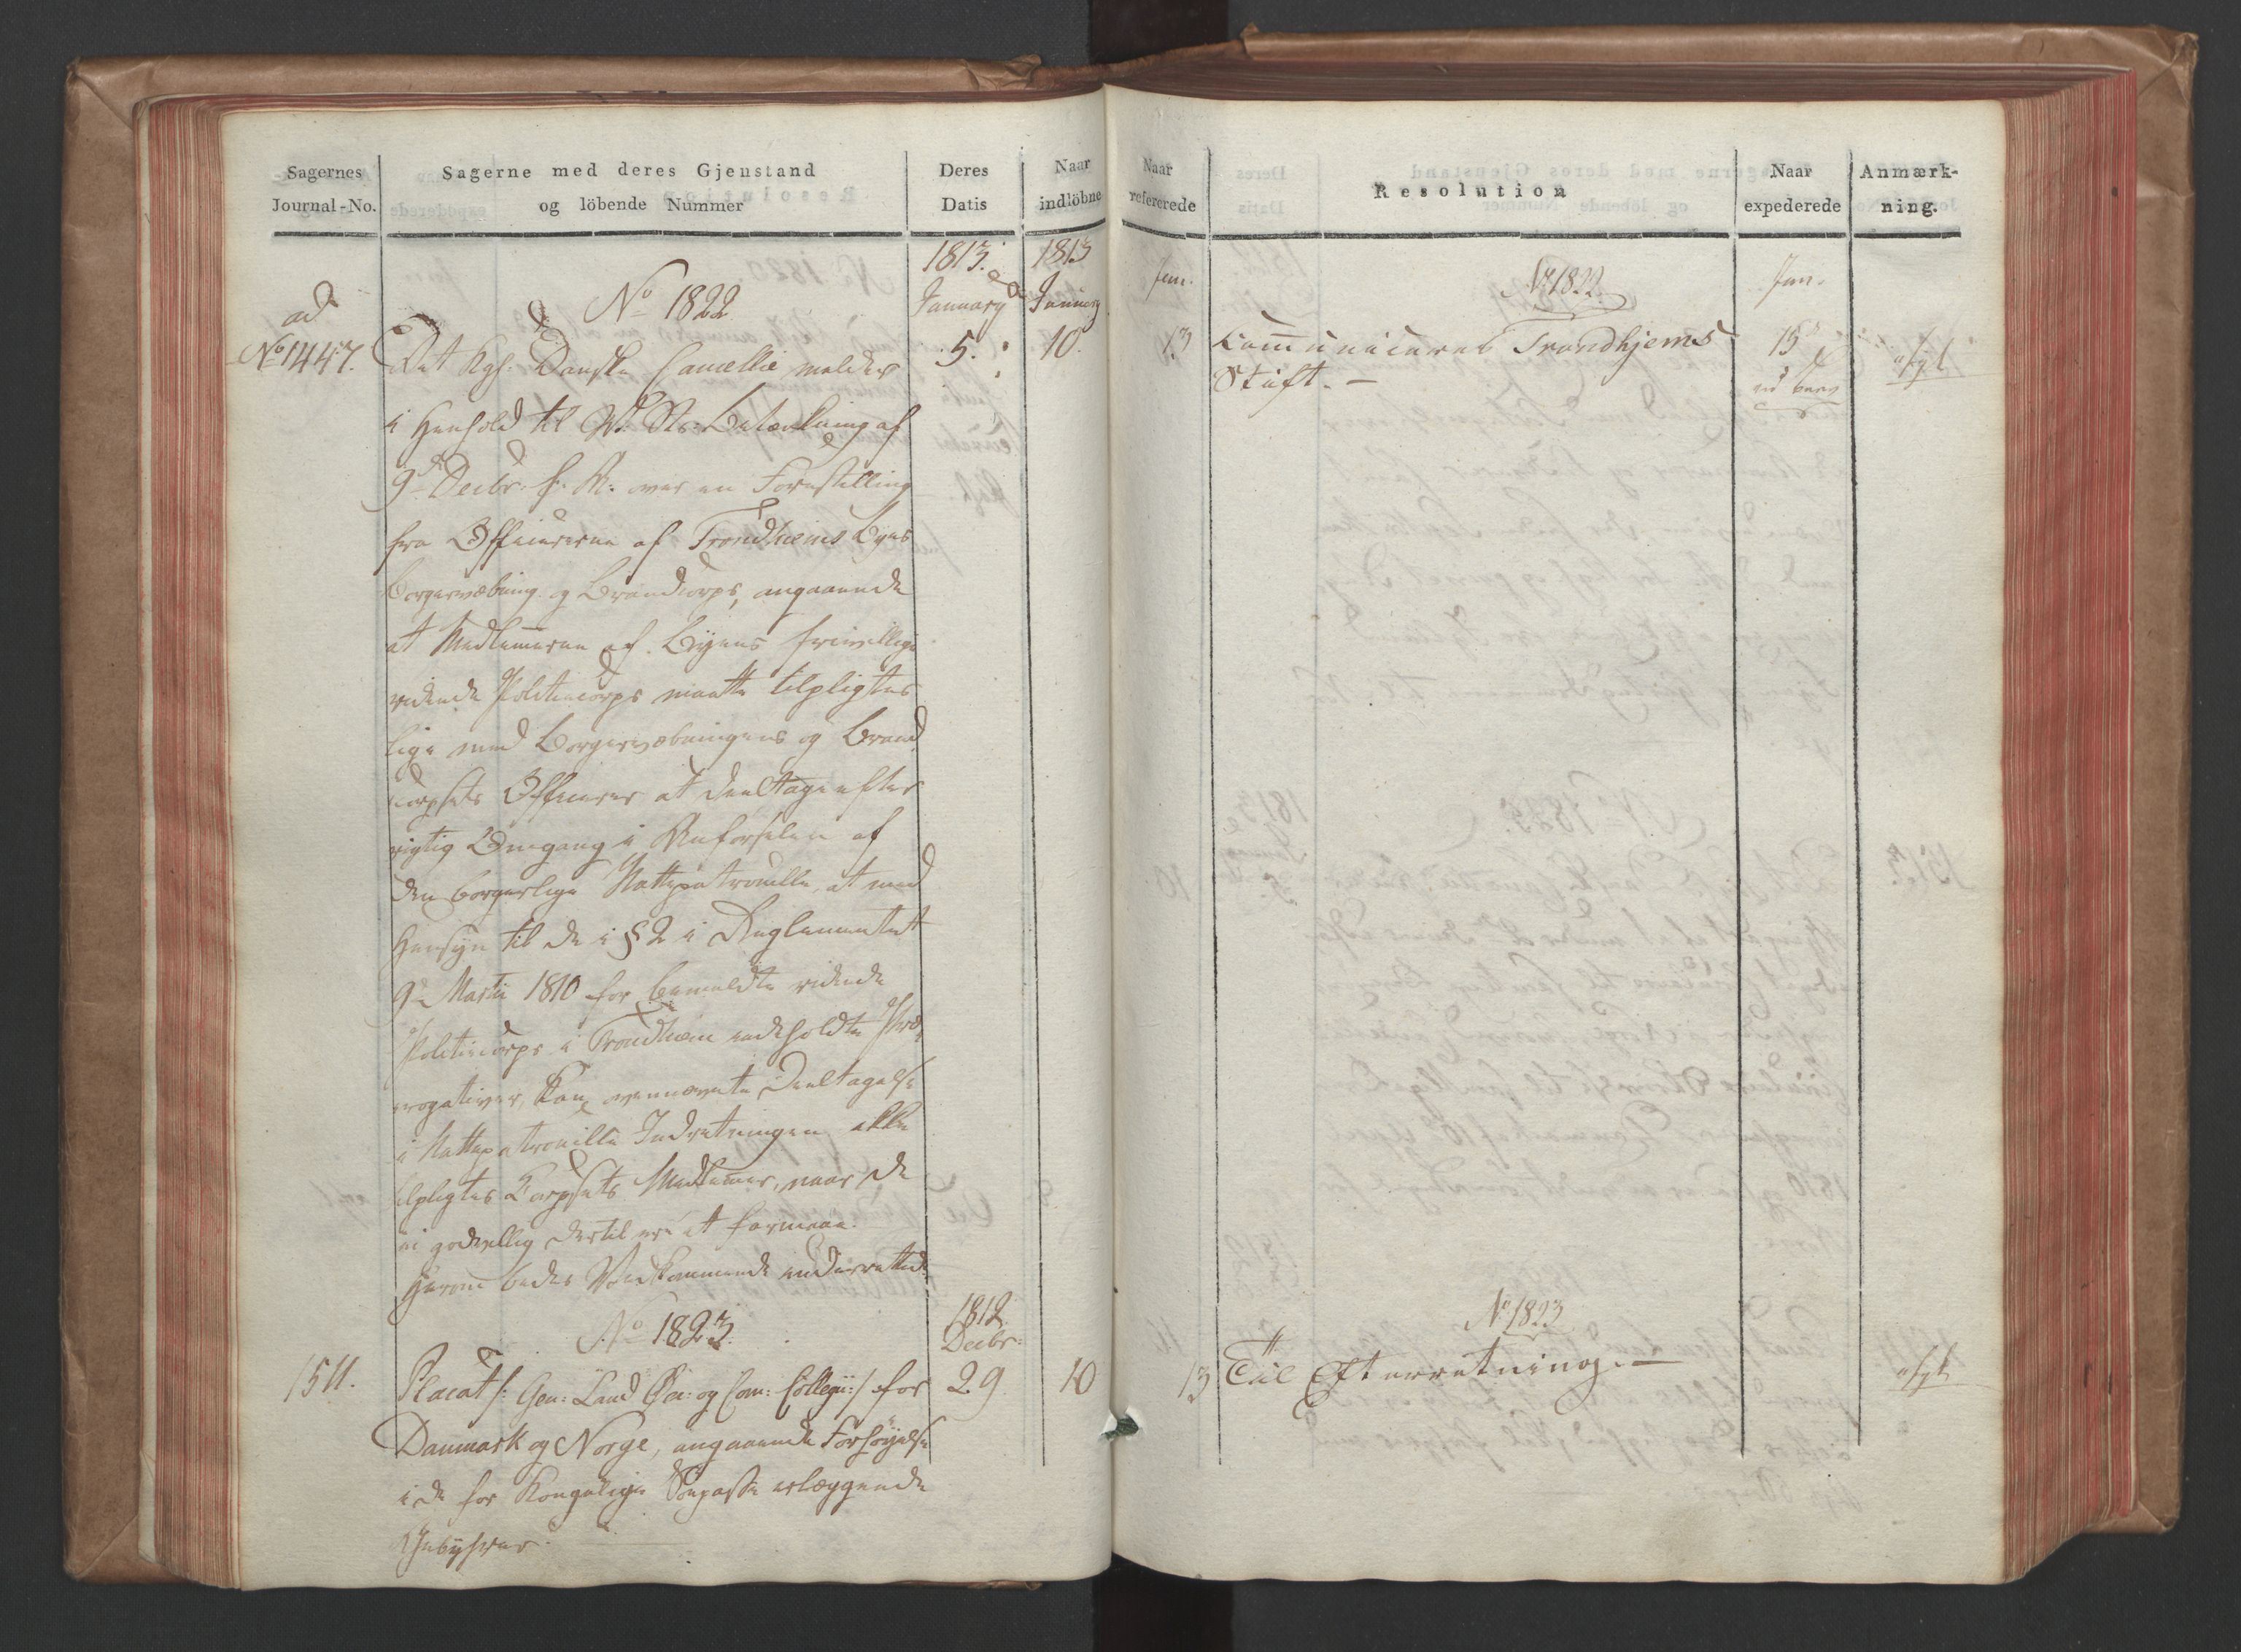 Sagernes
Journal-No.
Sagerne med deres Gjenstand
og löbende Nummer
Deres
Datis
Naar
indlöbne
1813.
January
1813
January
ad
No 1447.
No 1822
5.
10.
Det Kgl. Danske Cancellie melder
i Henhold til Betænkning af
9de Decbr. f. A. over en Forestilling
fra Officiererne af Trondhiems Byes
borgervæbning og Brandcorps, angaaende
at Medlemmerne af Byens frivillige
ridende Politiecorps maatte tilpligtes
lige med Borgervæbningens og Brand
corpsets Officierer at deeltage efter
rigtig Omgang i Anførselen af
den borgerlige Nattepatrouille, at med
Hensyn til de i § 2 i Reglementet
9de Martii 1810 for bemeldte ridende
Politiecorps i Trondhiem indeholdte Præ
rogativer, kan ovennævnte Deeltagelse
i Nattepatrouille Indretningen ikke
tilpligtes Corpsets Medlemmer, naar de
ei godvillig dertil ere at formaae.
Herom bedes Vedkommende underrettede
No 1823.
1812.
Decbr.
1511.
Placat /: Gen: Land Oec: og Com: Collegii :/ for
29.
10
Danmark og Norge, angaaende Forhøyelse
i de for Kongelige Søepasse erlæggende
Gebyhrer.
Naar
refererede
Resolution
Naar
expederede
Anmærk-
ning.
Jan.
No 1822.
Jan.
13
Communiceres Trondhjems
Stift. —
15
afgl
No 1823
13
Til Efterretning. —
afgl